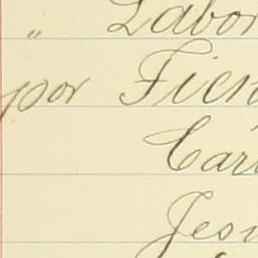 " Labor
por Fien
Car
Jesu